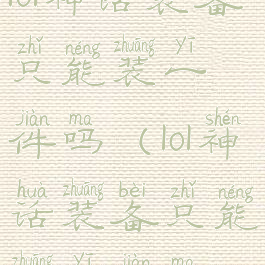 lol神话装备
zhǐ néng zhuāng yī
只能装一
jiàn ma shén
件吗（lol神
huà zhuāng bèi zhǐ néng
话装备只能
zhuāng yī jiàn ma